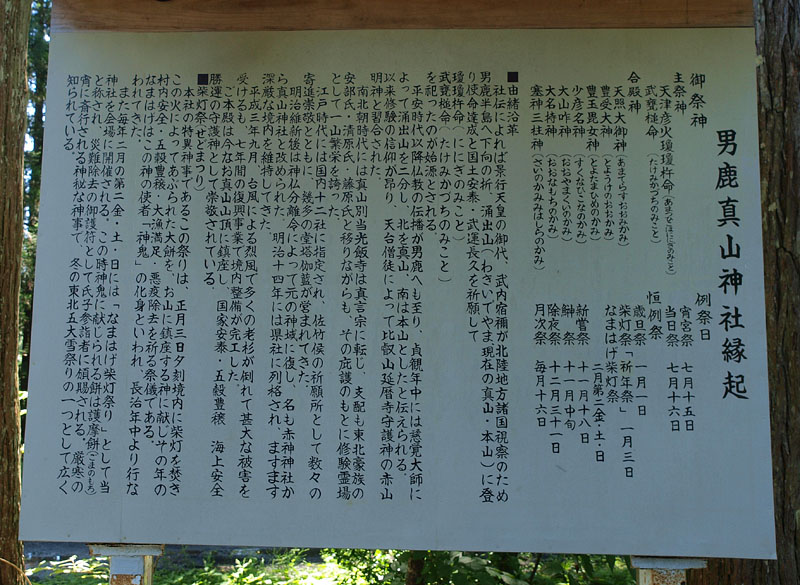 男鹿真山神社縁起
御祭神
主祭神
天津彦火瓊瓊杵命(あまつひこほににぎのみこと)
武甕槌命(たけみかづちのみこと)
合殿神
天照大御神(あまてらすおおみかみ)
豊受大神(とようけのおおかみ)
豊玉毘女神(とよたまひめのかみ)
少彦名神(すくなひこなのかみ)
大山咋神(おおやまくいのかみ)
大名持神(おおなもちのかみ)
塞神三柱神(さいのかみみはしらのかみ)
例祭日
宵宮祭 七月十五日
当日祭 七月十六日
恒例祭
歳旦祭 一月一日
柴灯祭「祈年祭」 一月三日
なまはげ柴灯祭
二月第二金・土・日
新嘗祭 十一月十八日
鰰祭 十一月中旬
除夜祭 十二月三十一日
月次祭 毎月十六日
■由緒沿革
社伝によれば景行天皇の御代、武内宿禰が北陸地方諸国視察のため
男鹿半島へ下向の折、涌出山(わきいでやま、現在の真山・本山)に登
り使命達成と国土安泰・武運長久を祈願して
瓊瓊杵命(ににぎのみこと)
武甕槌命(たけみかづちのみこと)
を祀ったのが始源とされる。
平安時代以降仏教の伝播が男鹿へも至り、貞観年中には慈覚大師に
よって涌出山を二分し、北を真山、南は本山としたと伝えられる。
以来修験の信仰が昂り、天台僧徒によって比叡山延暦寺守護神の赤山
明神と習合された。
南北朝時代には真山別当光飯寺は真言宗に転じ、支配も東北豪族の
安部氏・清原氏・藤原氏と移りながらも、その庇護のもとに修験霊場
として一山繁栄を誇った。
江戸時代には国内十二社に指定され、佐竹侯の祈願所として数々の
寄進崇敬とともに、幾多の堂塔伽藍が営まれてきた。
明治維新後は神仏分離令によって元の神域に復し、名も赤神神社か
ら真山神社と改められた。明治十四年には県社に列格され、ますます
深厳な境内を維持してきた。
平成三年九月、台風による烈風で多くの老杉が倒れて甚大な被害を
受けるも、七年間の復興事業で境内整備が完工した。
ご本殿は今なお真山山頂に鎮座し、国家安泰・五穀豊穣 海上安全
勝運の守護神として崇敬されている。
■柴灯祭(せどまつり)
本社の特異神事であるこの祭りは、正月三日夕刻境内に柴灯を焚き
この火によってあぶられた大餅を、お山に鎮座する神に献じその年の
村内安全・五穀豊穣・大漁満足・悪疫除去を祈る祭儀である。
なまはげはこの神の使者「神鬼」の化身といわれ、長治年中より行な
われてきた。
また毎年二月の第二金・土・日には「なまはげ柴灯祭り」として当
神社を会場に開催される。この時神鬼に献じられる餅は護摩餅(ごまのもち)
と称され、災難除去の御護符として氏子参詣者に頒賜される。厳寒の
宵に斎行される神秘な神事で、冬の東北五大雪祭りの一つとして広く
知られている。